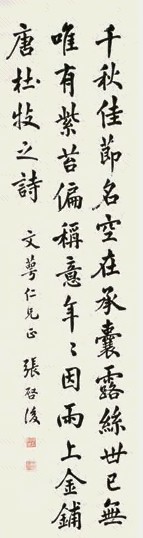 千秋佳節名空在承囊露絲世已無
唯有紫苔偏稱意年〻因雨上金鋪
唐杜牧之詩
文蕚仁兄正 張啓後